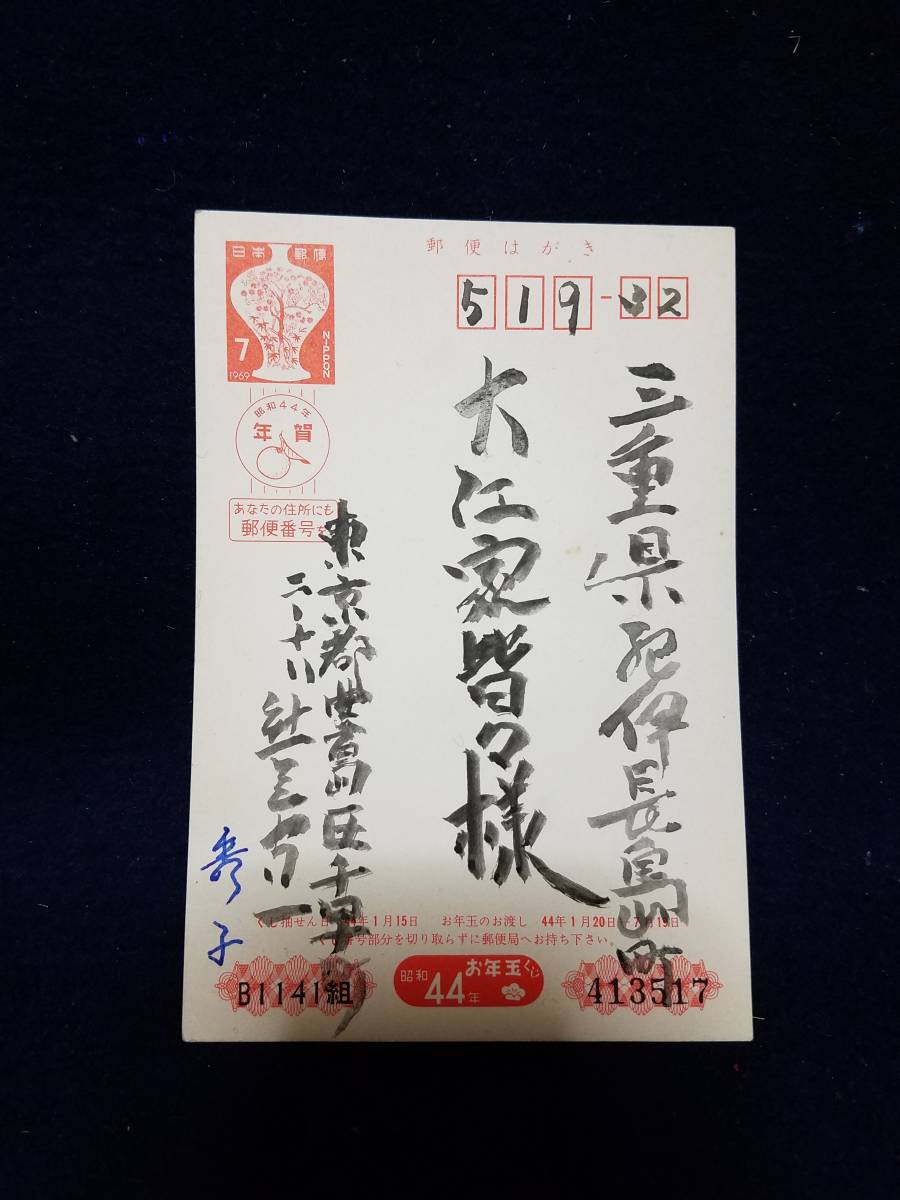 郵便はがき
日本郵便
7
1969
NIPPON
519-02
昭和44年
年賀
あなたの住所にも
郵便番号を
三重県紀伊長島町
大江家皆々様
東京都豊島区千早町
二ノ十八
秀子
くじ抽せん日 44年1月15日 お年玉のお渡し 44年1月20日-7月19日
くじ番号部分を切り取らずに郵便局へお持ち下さい。
B1141組
昭和44年
お年玉くじ
413517